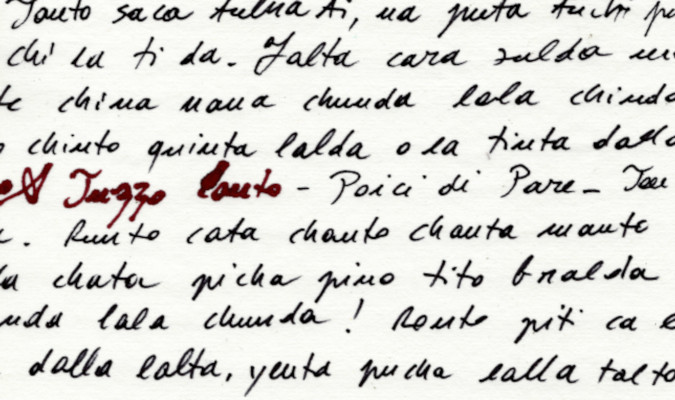 saca ti, na puta tuchi
chi ea ti da. Jalta cara salda
china nana chunda lala chinda
chinto quinta lalda o ea tinta dalla
Tuzzo Canto - Poici di Pare -
. Runto cata chanto chanta manto
chata picha pino tito bralda
lala chunda! Ronto piti ca
dalla lalta, yenta pucha ealla talto